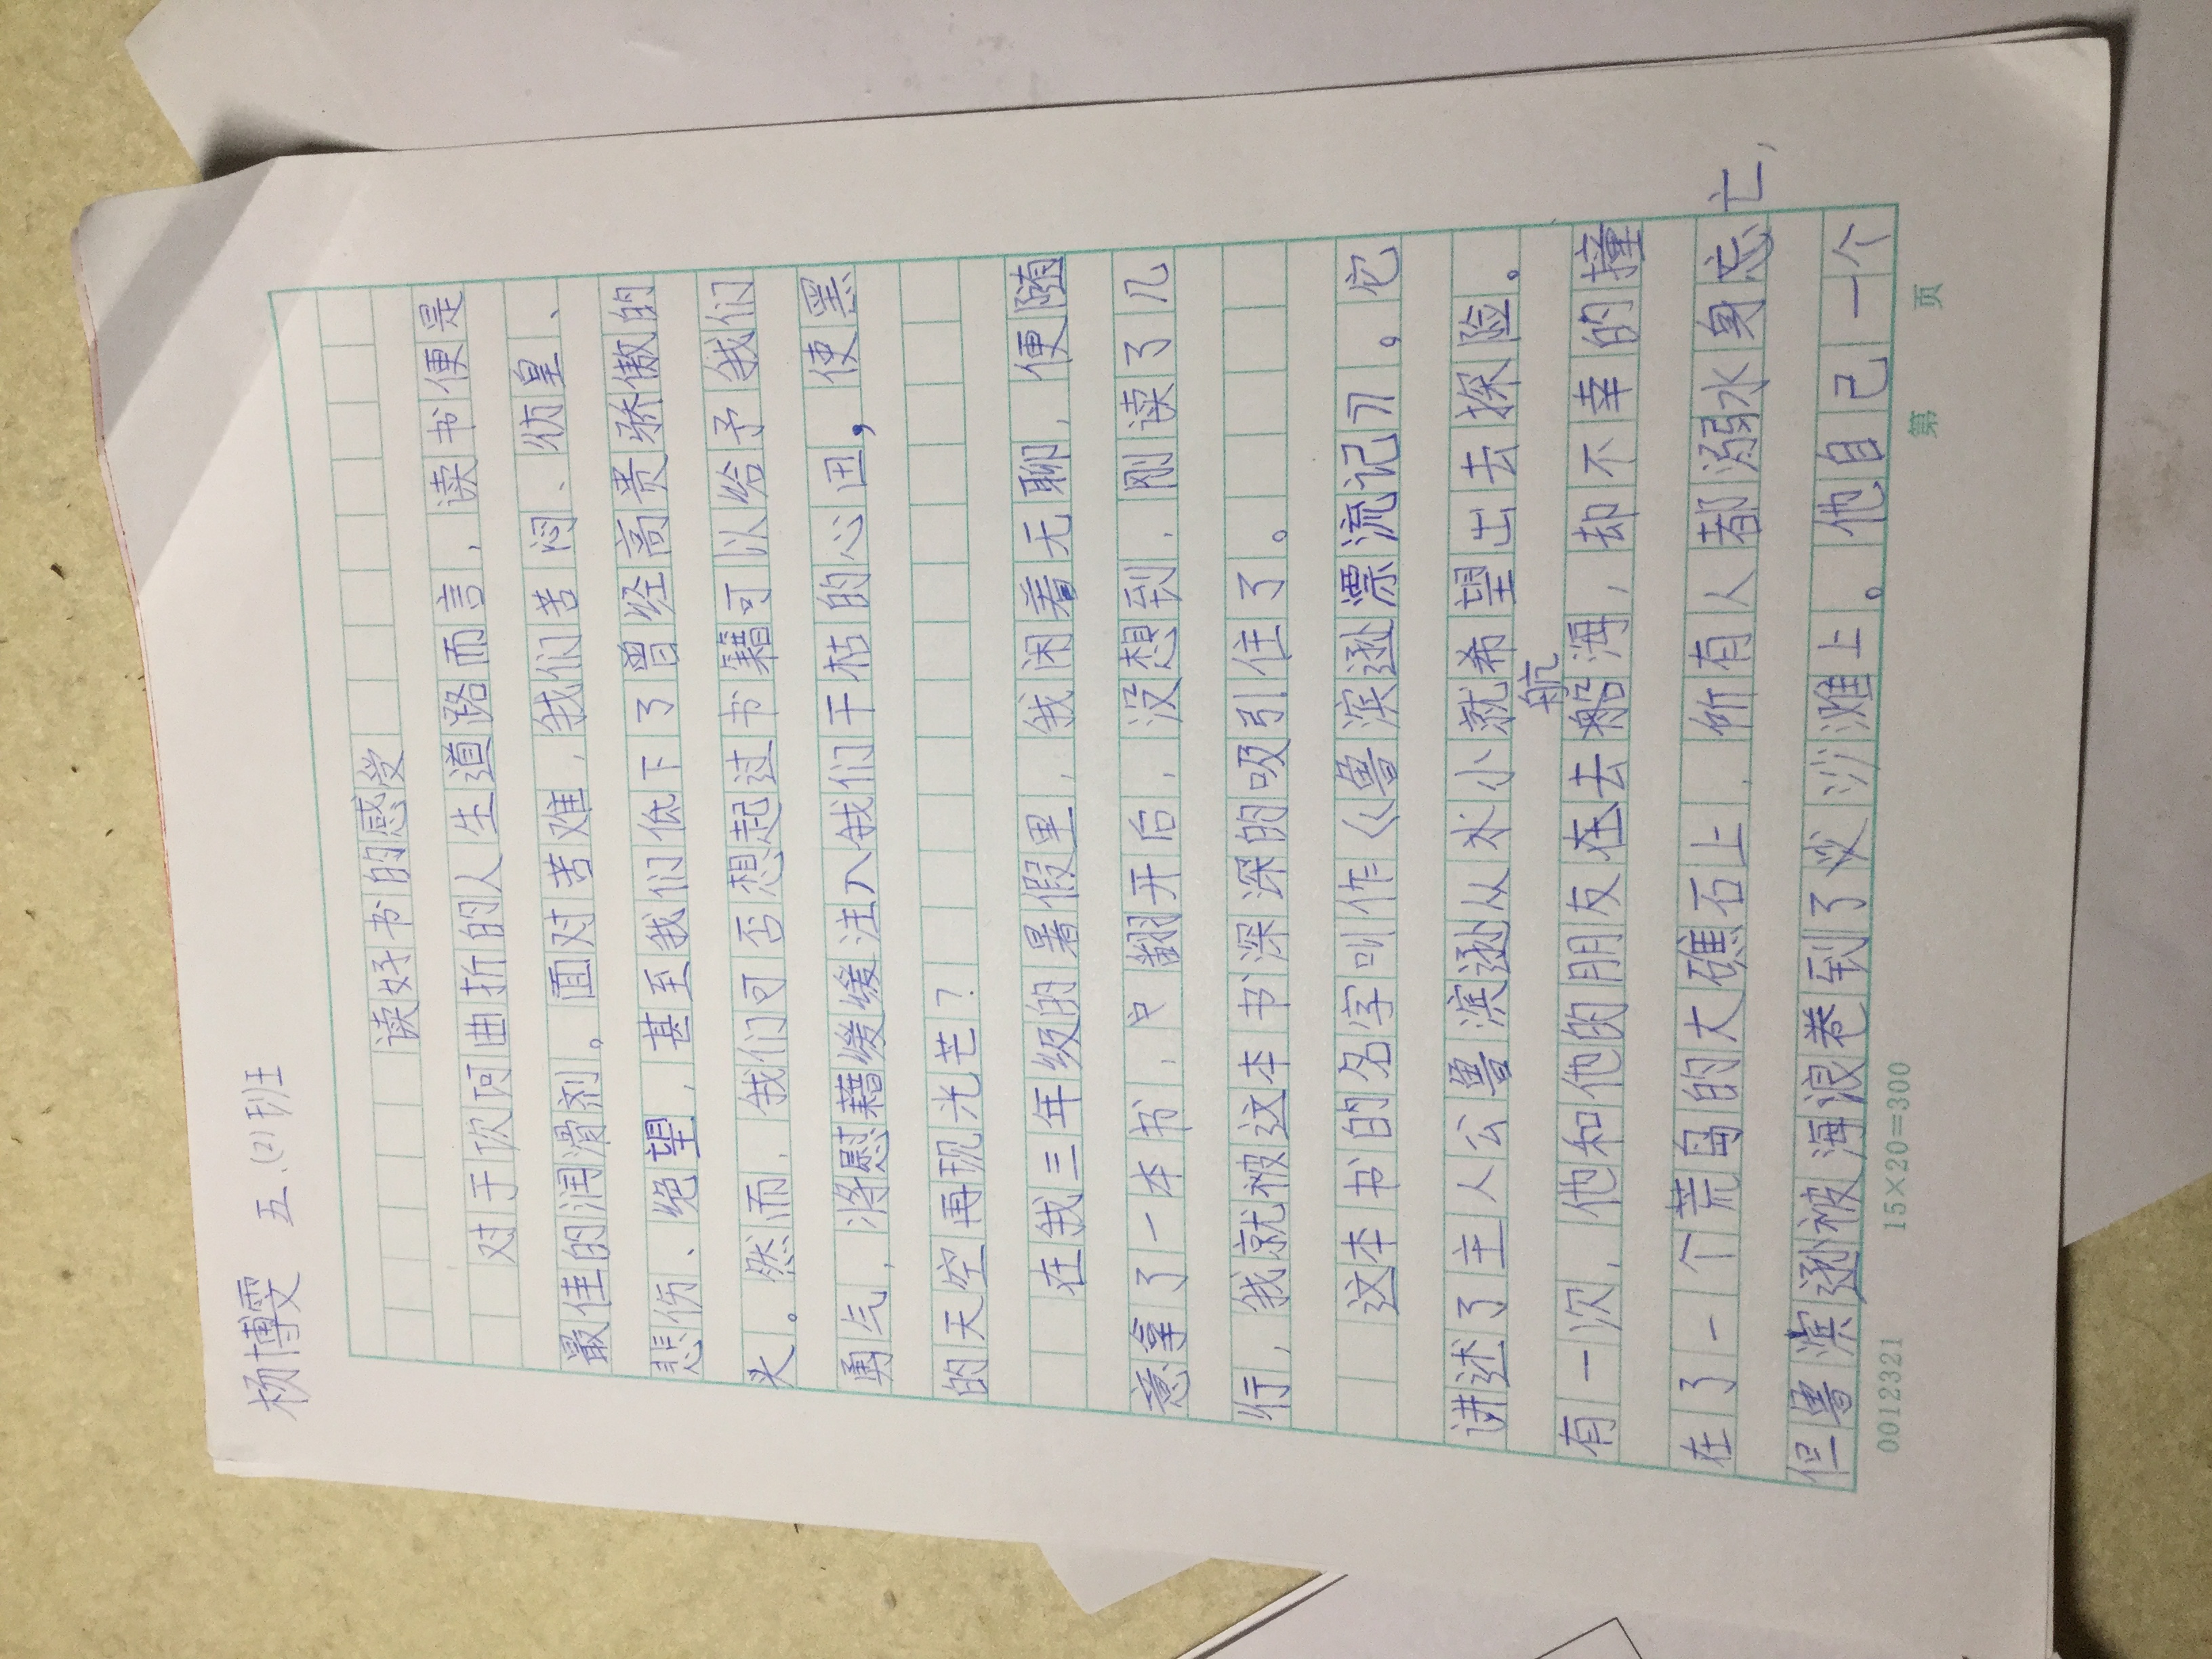 杨博雯 五.(2)班
读好书的感受
对于坎坷曲折的人生道路而言，读书便是
最佳的润滑剂。面对苦难，我们苦闷、彷皇、
悲伤、绝望，甚至我们低下了曾经高贵骄傲的
头。然而，我们可否想起过书籍可以给予我们
勇气，将慰藉缓缓注入我们干枯的心田，使黑
的天空再现光芒？
在我三年级的暑假里，我闲着无聊，便随
意拿了一本书，翻开后，没想到，刚读了几
行，我就被这本书深深的吸引住了。
这本书的名字叫作《鲁滨逊漂流记》。它
讲述了主人公鲁滨逊从小就希望出去探险。
有一次，他和他的朋友在去航海，却不幸的撞
在了一个荒岛的大礁石上，所有人都溺水身亡，
但鲁滨逊被海浪卷到了沙滩上。他自己一个
0012321 15×20=300 第 页